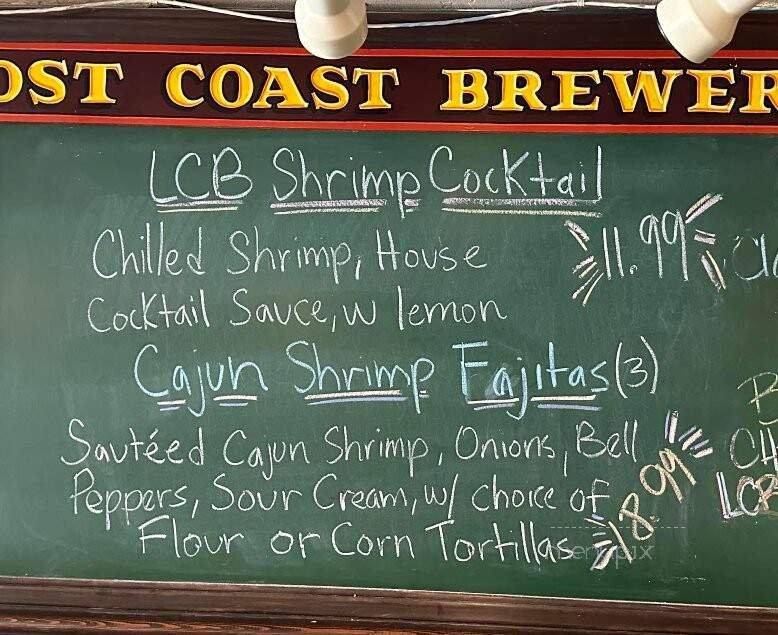 OST COAST BREWER
LCB Shrimp Cocktail
Chilled Shrimp, House
11.99
Cocktail Sauce, w lemon
Cajun Shrimp Fajitas (3)
Sautéed Cajun Shrimp, Onions, Bell
Peppers, Sour Cream, w/ choice of
Flour or Corn Tortillas
18.99
CH
LCB
menupix